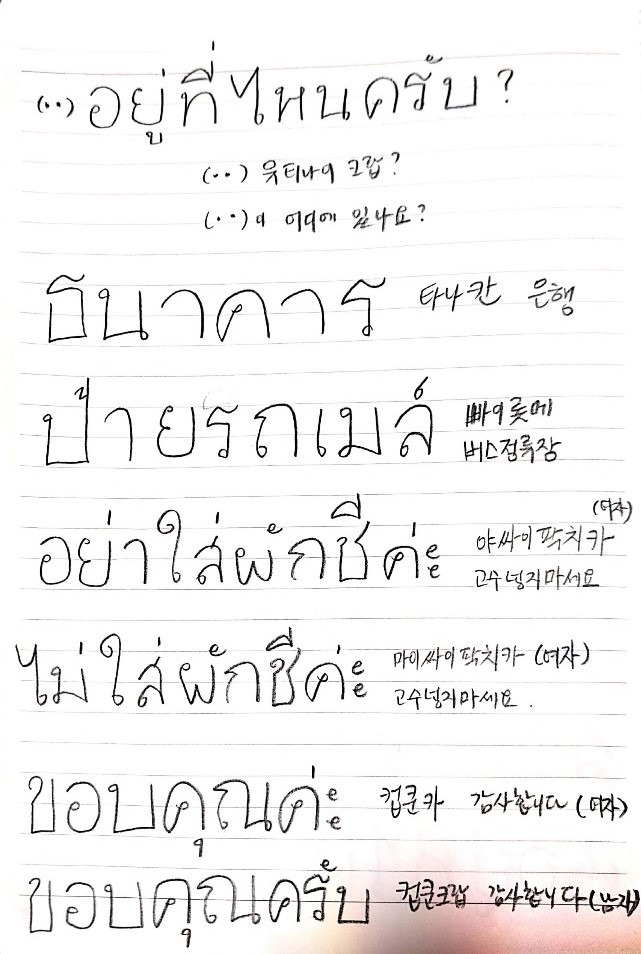 (··) อยู่ที่ไหนครับ?
(··) 윳티나이 크랍?
(··)이 어디에 있나요?
ธนาคาร 타나칸 은행
ป้ายรถเมล์ 빠이롯메
버스정류장
(여자)
อย่าใส่ผักชีค่ะ 야싸이팍치카
고수넣지마세요
ไม่ใส่ผักชีค่ะ 마이싸이팍치카 (여자)
고수넣지마세요.
ขอบคุณค่ะ 컵쿤카 감사합니다 (여자)
ขอบคุณครับ 컵쿤크랍 감사합니다 (남자)